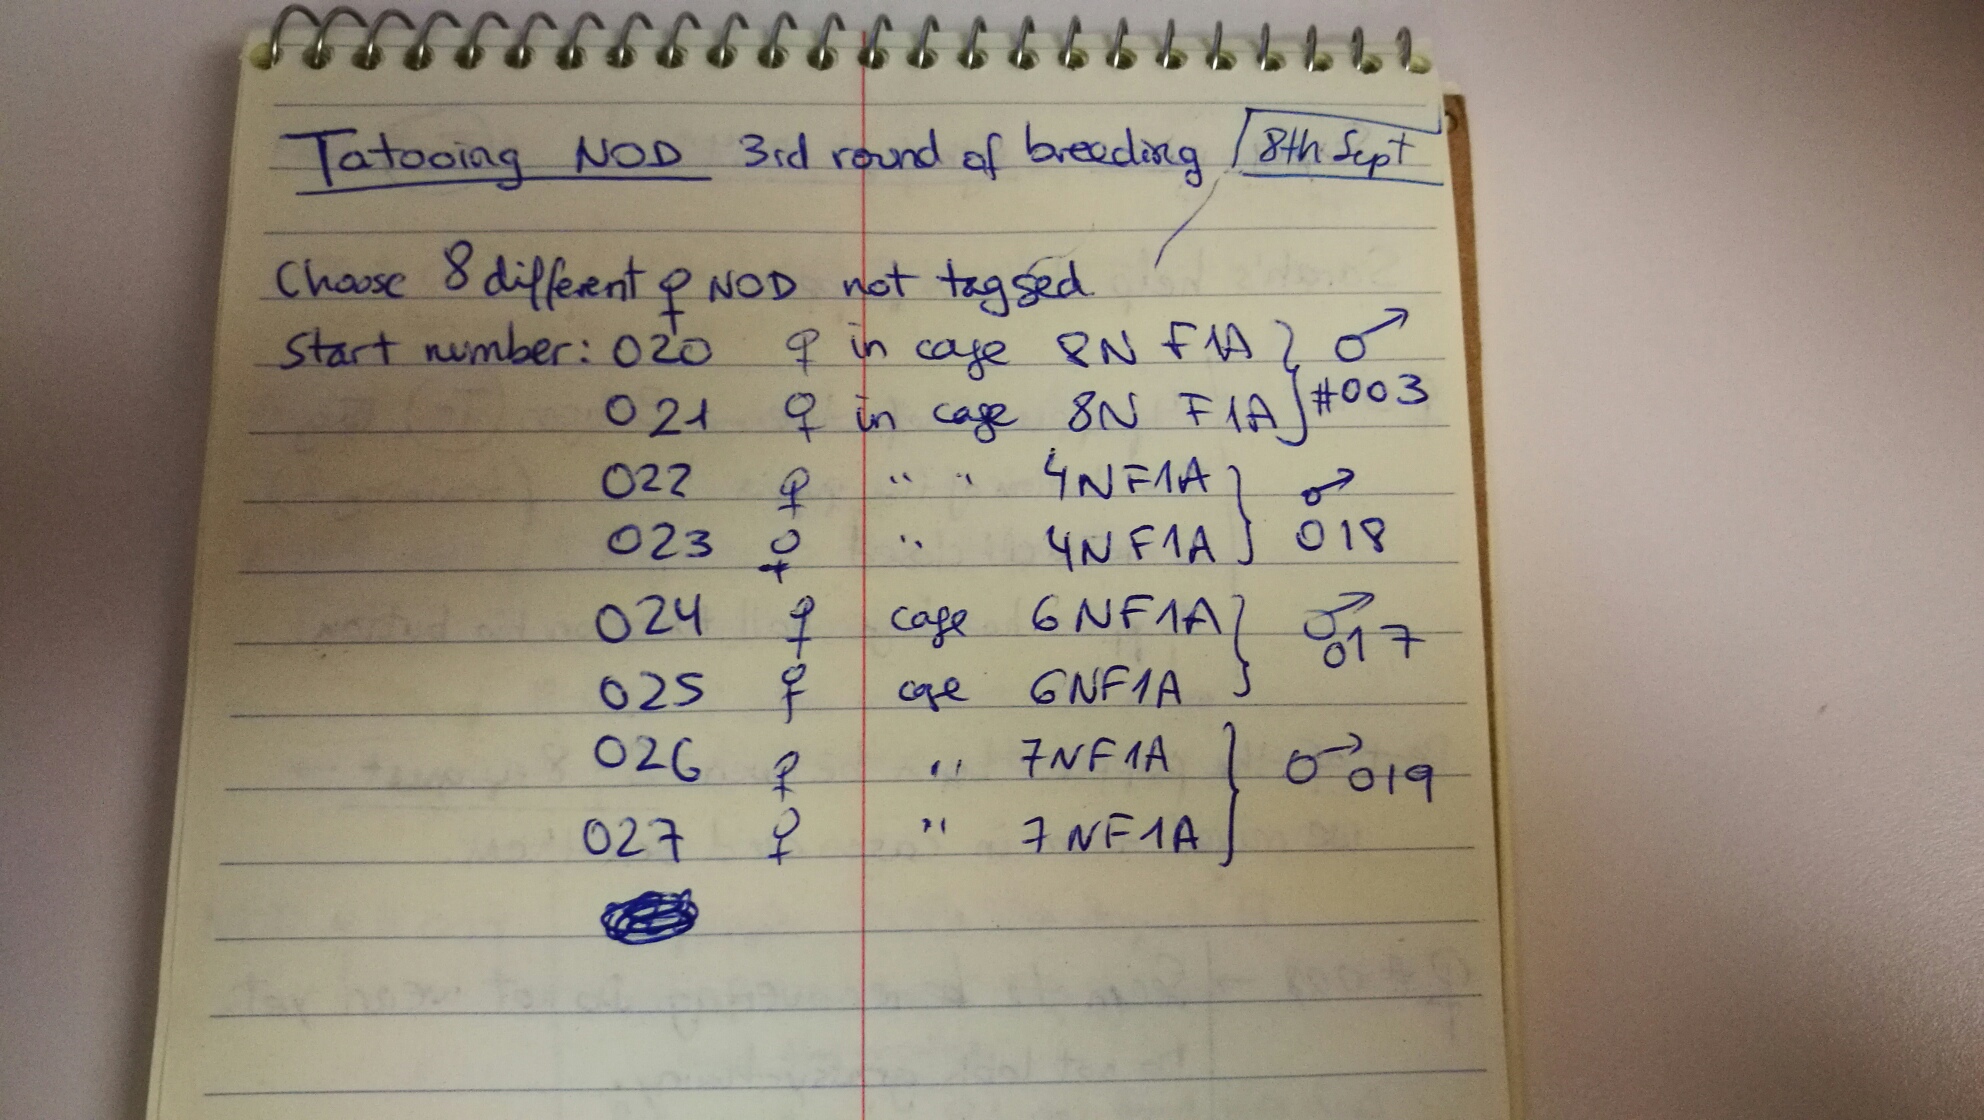 Tatooing NOD 3rd round of breeding 8th Sept
Choose 8 different ♀ NOD not tagged
Start number: 020 ♀ in cage 8N F1A } ♂
021 ♀ in cage 8N F1A } #003
022 ♀ " " 4NF1A } ♂
023 ♀ " 4NF1A } 018
024 ♀ cage 6NF1A } ♂ 017
025 ♀ cage 6NF1A
026 ♀ " 7NF1A } ♂ 019
027 ♀ " 7NF1A